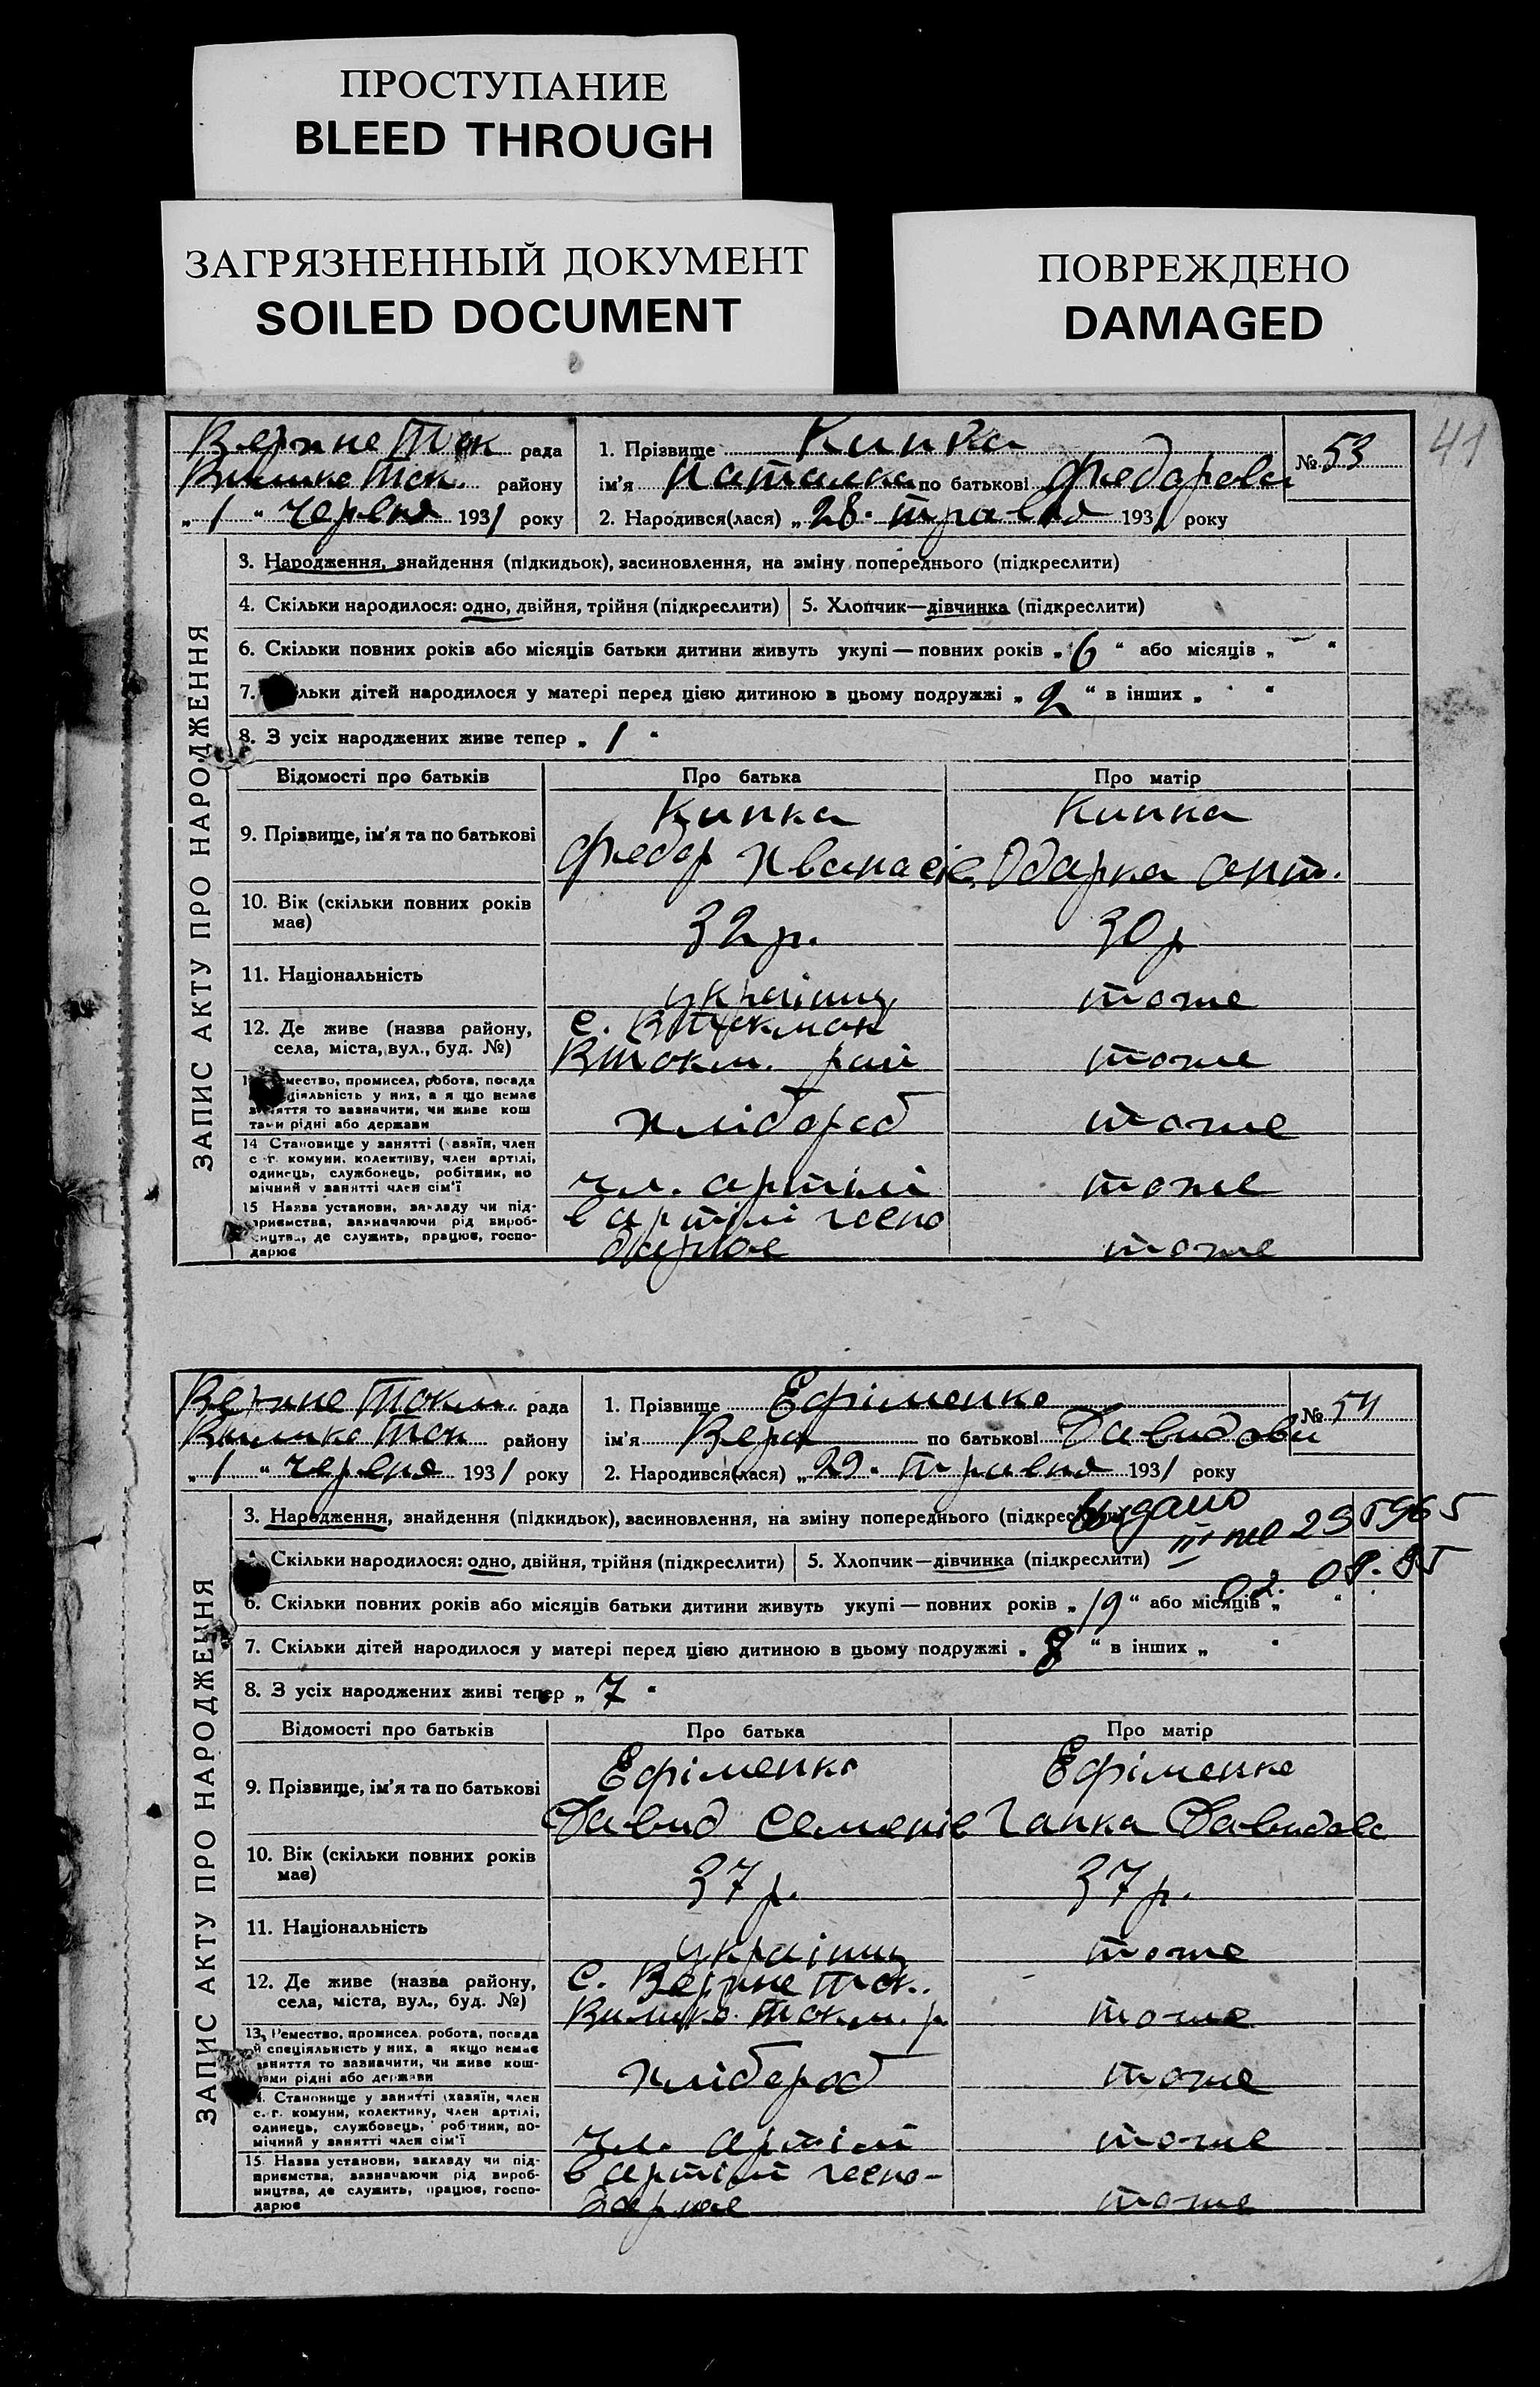 ПРОСТУПАНИЕ
BLEED THROUGH
ЗАГРЯЗНЕННЫЙ ДОКУМЕНТ
SOILED DOCUMENT
ПОВРЕЖДЕНО
DAMAGED
41
Верхне Ток рада
Велико Ток. району
„ 1 “ червня 1931 року
1. Прізвище Кипка
ім'я Наталка по батькові Федорова
№ 53
2. Народився(лася) „28. травня 1931 року
ЗАПИС АКТУ ПРО НАРОДЖЕННЯ
3. Народження, знайдення (підкидьок), засиновлення, на зміну попереднього (підкреслити)
4. Скільки народилося: одно, двійня, трійня (підкреслити) 5. Хлопчик—дівчинка (підкреслити)
6. Скільки повних років або місяців батьки дитини живуть укупі — повних років „ 6 “ або місяців „ – “
7. льки дітей народилося у матері перед цією дитиною в цьому подружжі „ 2 “ в інших „ “
8. З усіх народжених живе тепер „ 1 “
Відомості про батьків Про батька Про матір
9. Прізвище, ім'я та по батькові
Кипка Кипка
Федор Одарка Ант.
10. Вік (скільки повних років має) 32 р. 30 р
11. Національність українц тоже
12. Де живе (назва району, села, міста, вул., буд. №)
с. В Токмак
В Токм. рай тоже
мество, промисел, робота, посада
діяльність у них, а я що немає
няття то зазначити, чи живе кош
тами рідні або держави
хлібороб тоже
14 Становище у занятті ( азяїн, член
с г. комуни, колективу, член артілі,
одинець, службонець, робітник, по
мічний у занятті член сім'ї
чл. артілі тоже
15 Назва установи, закладу чи під-
приємства, зазначаючи рід вироб-
ництва, де служить, працює, госпо-
дарює
в артілі госпо
дарює тоже
Верхне Токм. рада
Велико Ток району
„ 1 “ червня 1931 року
1. Прізвище Ефіменко
ім'я Вера по батькові Давидови
№ 54
2. Народився(лася) „29. травня 1931 року
ЗАПИС АКТУ ПРО НАРОДЖЕННЯ
3. Народження, знайдення (підкидьок), засиновлення, на зміну попереднього (підкрес
Видано
02. 08. 85
Скільки народилося: одно, двійня, трійня (підкреслити) 5. Хлопчик—дівчинка (підкреслити)
6. Скільки повних років або місяців батьки дитини живуть укупі — повних років „ 19 “ або місяців „ “
7. Скільки дітей народилося у матері перед цією дитиною в цьому подружжі „ 8 “ в інших „ “
8. З усіх народжених живі тепер „ 7 “
Відомості про батьків Про батька Про матір
9. Прізвище, ім'я та по батькові
Ефіменко Ефіменко
Давид Семенів Гапка Давидов
10. Вік (скільки повних років має) 37 р. 37 р.
11. Національність українц тоже
12. Де живе (назва району, села, міста, вул., буд. №)
с. Верхне Ток.
Велико Токм. р тоже
13, Ремество, промисел, робота, посада
й спеціяльність у них, а якщо немає
заняття то зазначити, чи живе кош-
тами рідні або держави
хлібороб тоже
Становище у занятті (хазяїн, член
с. г. комуни, колективу, член артілі,
одинець, службовець, роб тник, по-
мічний у занятті член сім'ї
чл. артілі тоже
15. Назва установи, закладу чи під-
приємства, зазначаючи рід вироб-
ництва, де служить, працює, госпо-
дарює
в артілі госпо-
дарює тоже